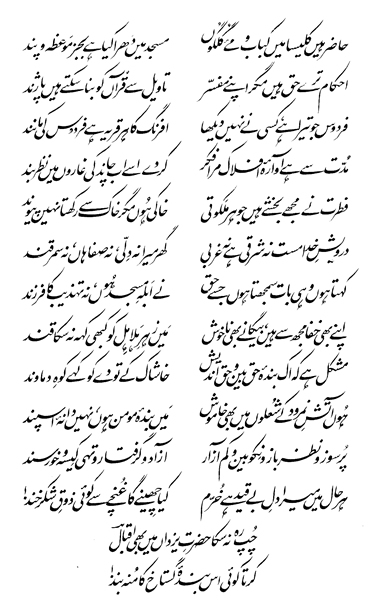 حاضر ہیں کلیسا میں کباب و مے گلگوں مسجد میں دھرا کیا ہے بجز موعظہ و پند
احکام ترے حق ہیں مگر اپنے مفسر تاویل سے قرآں کو بنا سکتے ہیں پاژند
فردوس جو تیرا ہے کسی نے نہیں دیکھا افرنگ کا ہر قریہ ہے فردوس کی مانند
مدت سے ہے آوارۂ افلاک مرا فکر کر دے اسے اب چاند کی غاروں میں نظر بند
فطرت نے مجھے بخشے ہیں جوہر ملکوتی خاکی ہوں مگر خاک سے رکھتا نہیں پیوند
درویش خدا مست نہ شرقی ہے نہ غربی گھر میرا نہ دلی، نہ صفاہاں، نہ سمرقند
کہتا ہوں وہی بات سمجھتا ہوں جسے حق نے ابلہ مسجد ہوں، نہ تہذیب کا فرزند
اپنے بھی خفا مجھ سے ہیں، بیگانے بھی ناخوش میں زہر ہلاہل کو کبھی کہہ نہ سکا قند
مشکل ہے کہ اک بندۂ حق بین و حق اندیش خاشاک کے تودے کو کہے کوہ دماوند
ہوں آتش نمرود کے شعلوں میں بھی خاموش میں بندۂ مومن ہوں، نہیں دانۂ اسپند
پرسوز و نظر باز و نکوبین و کم آزار آزاد و گرفتار و تہی کیسہ و خورسند
ہر حال میں میرا دل بے قید ہے خرم کیا چھینے گا غنچے سے کوئی ذوق شکر خند!
چپ رہ نہ سکا حضرت یزداں میں بھی اقبال
کرتا کوئی اس بندۂ گستاخ کا منہ بند!